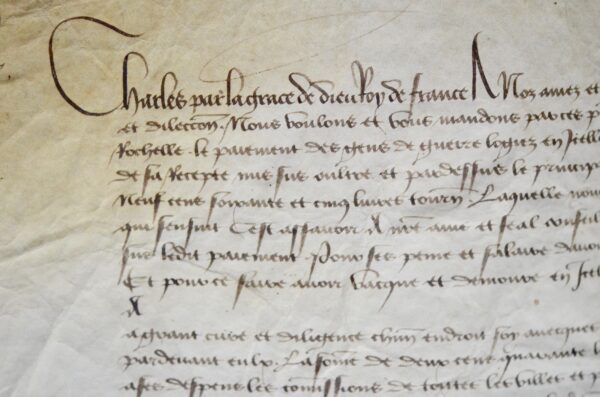 Charles par la grace de dieu Roy de france A Noz amez et
et dilection. Nous voulons et vous mandons par ces p
Rochelle le paiement des gens de guerre logiez en Icell
de sa Recepte mis sus oultre et pardessus le princip
Neuf cens soixante et cinq livres tourn. Laquelle nou
qui sensuit Cest assavoir A nre ame et feal conseil
sus ledit paiement Pour ses peine et salaire davoi
Et pour ce faire avoir vacque et demoure en Icel
A
a grant cure et diligence chun endroit soy avecques
pardevant eulx. La some de deux cens quarante l
a ses despens les comissions de toutes les villes et p